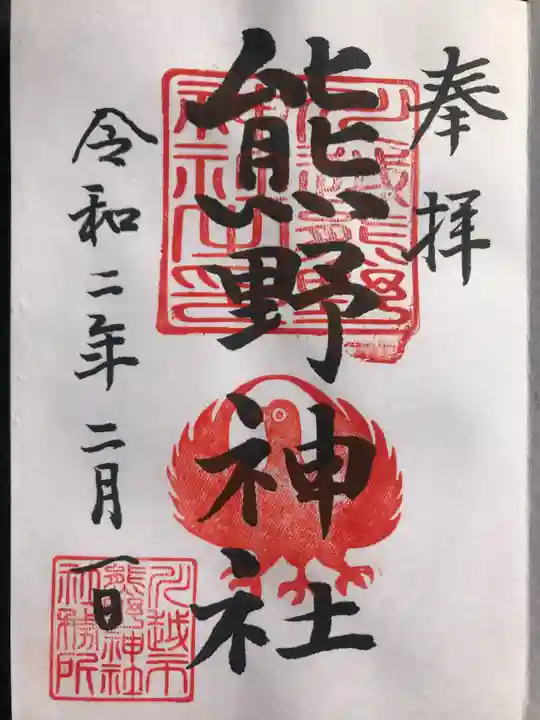 奉拝
熊野神社
令和二年二月一日
川越市
熊野神社
社務所